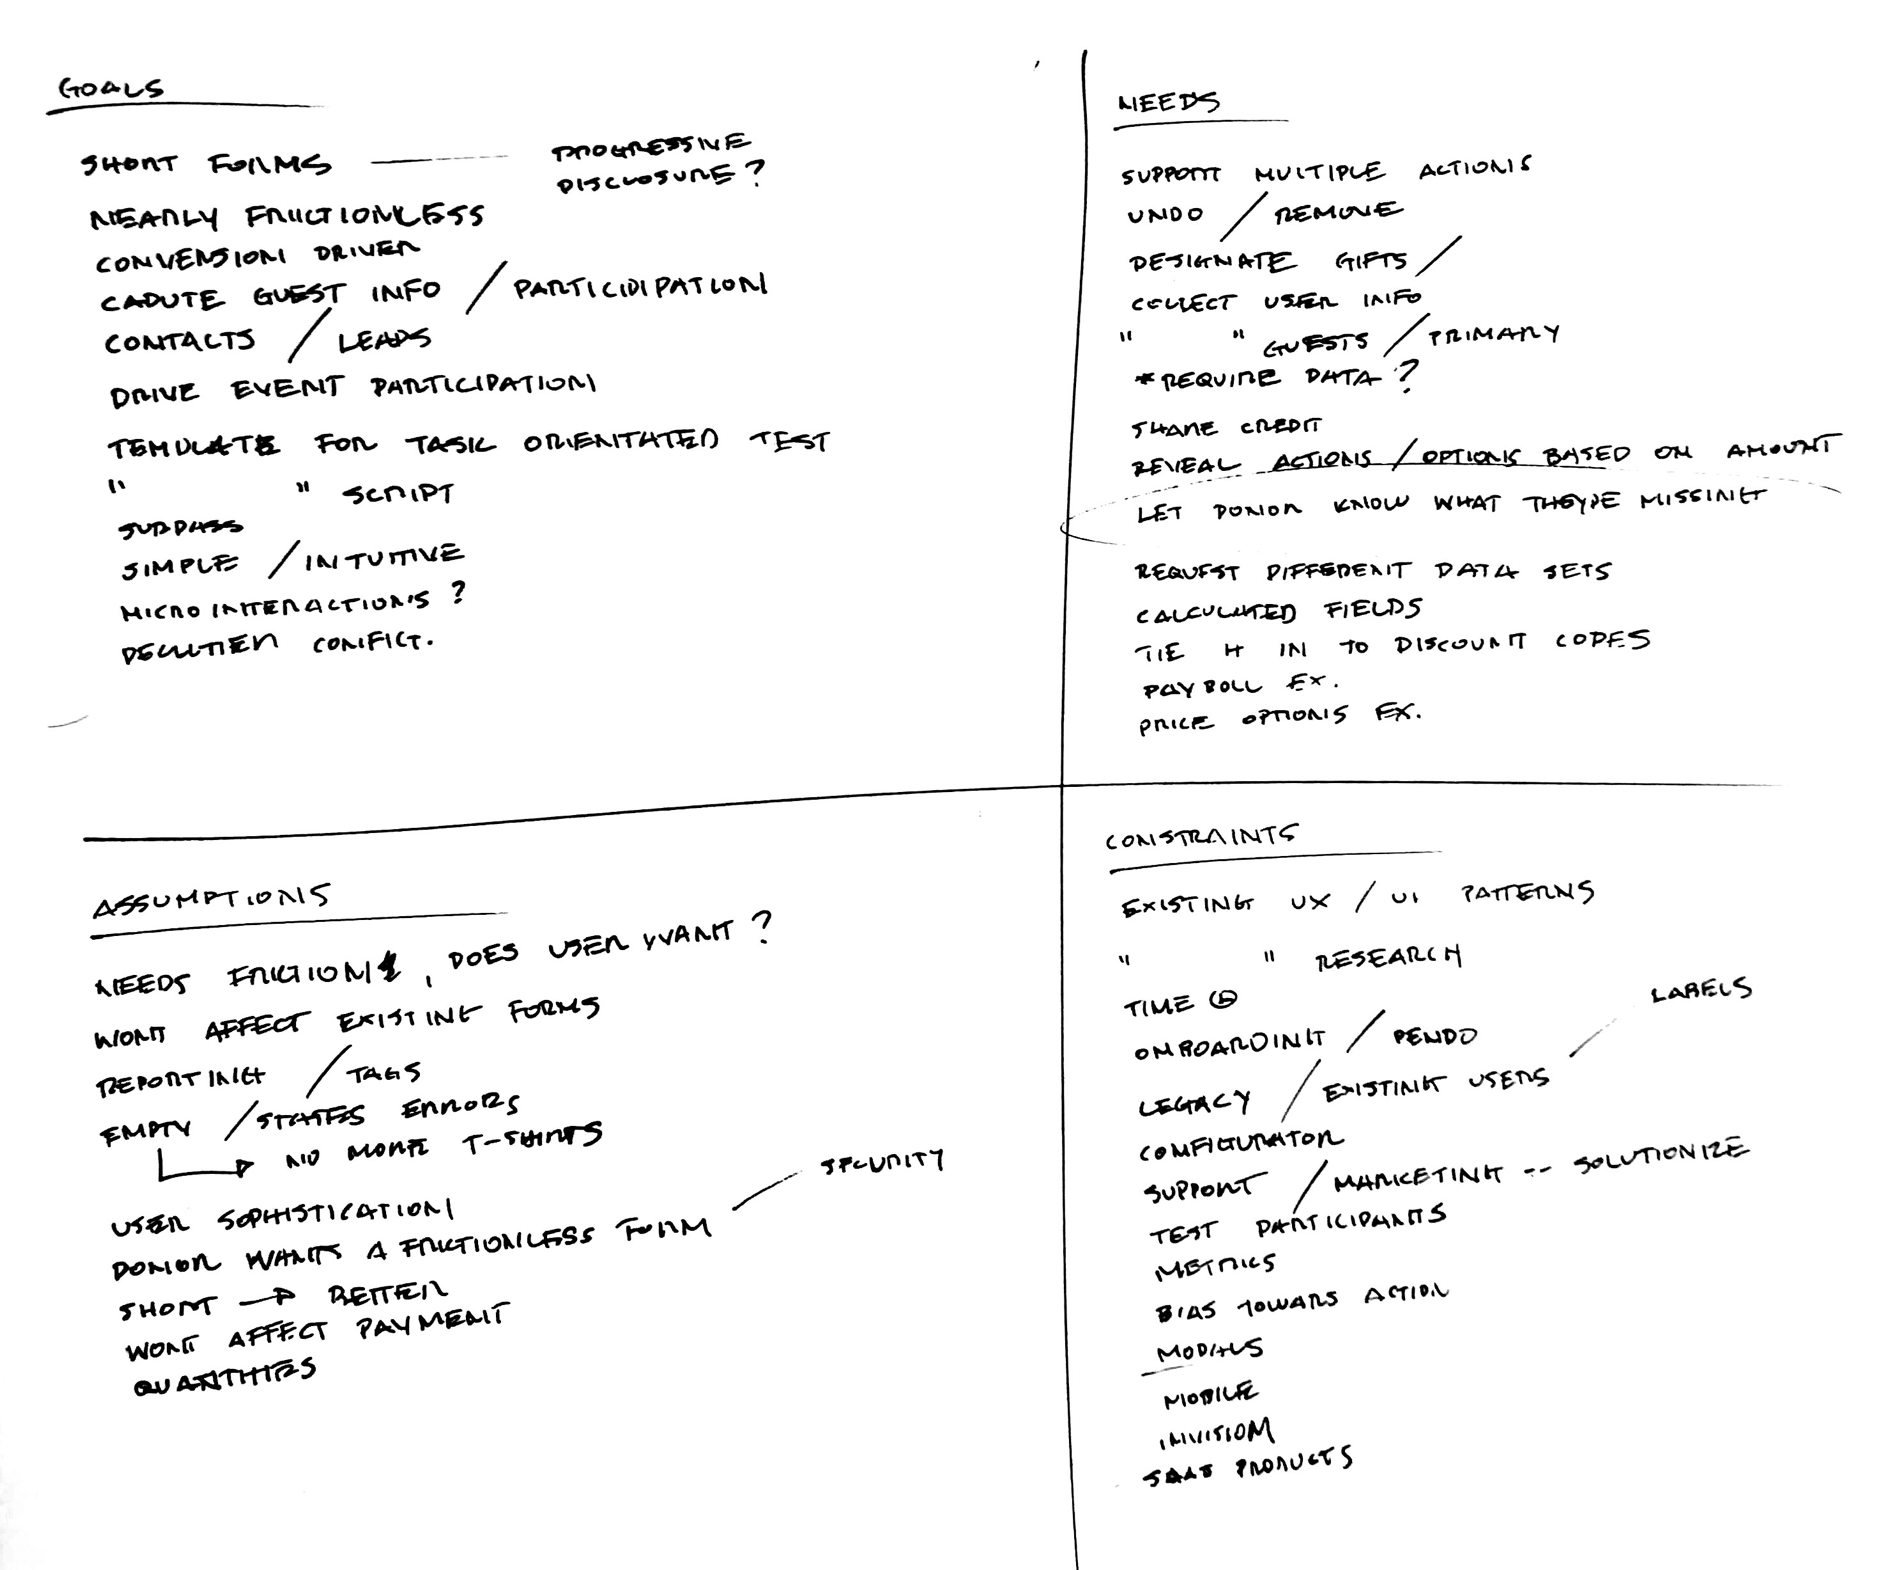 GOALS
SHORT FORMS — PROGRESSIVE
DISCLOSURE?
NEARLY FRICTIONLESS
CONVERSION DRIVEN
CAPUTE GUEST INFO / PARTICIDIPATION
CONTACTS / LEADS
DRIVE EVENT PARTICIPATION
TEMPLATE FOR TASK ORIENTATED TEST
" " SCRIPT
SURPASS
SIMPLE / INTUITIVE
MICRO INTERACTIONS?
DECLUTTER CONFIG.
NEEDS
SUPPORT MULTIPLE ACTIONS
UNDO / REMOVE
DESIGNATE GIFTS /
COLLECT USER INFO
" " GUESTS / PRIMARY
*REQUIRE DATA?
SHARE CREDIT
REVEAL ACTIONS / OPTIONS BASED ON AMOUNT
LET DONOR KNOW WHAT THEY'RE MISSING
REQUEST DIFFERENT DATA SETS
CALCULATED FIELDS
TIE IT IN TO DISCOUNT CODES
PAYROLL EX.
PRICE OPTIONS EX.
ASSUMPTIONS
NEEDS FRICTION, DOES USER WANT?
WONT AFFECT EXISTING FORMS
REPORTING / TAGS
EMPTY / STATES ERRORS
NO MORE T-SHIRTS
USER SOPHISTICATION
DONOR WANTS A FRICTIONLESS FORM — SECURITY
SHORT → BETTER
WONT AFFECT PAYMENT
QUANTITIES
CONSTRAINTS
EXISTING UX / UI PATTERNS
" " RESEARCH
TIME
ONBOARDING / PENDO
LEGACY / EXISTING USERS — LABELS
CONFIGURATOR
SUPPORT / MARKETING -- SOLUTIONIZE
TEST PARTICIPANTS
METRICS
BIAS TOWARS ACTION
MODALS
MOBILE
INVISION
SAAS PRODUCTS